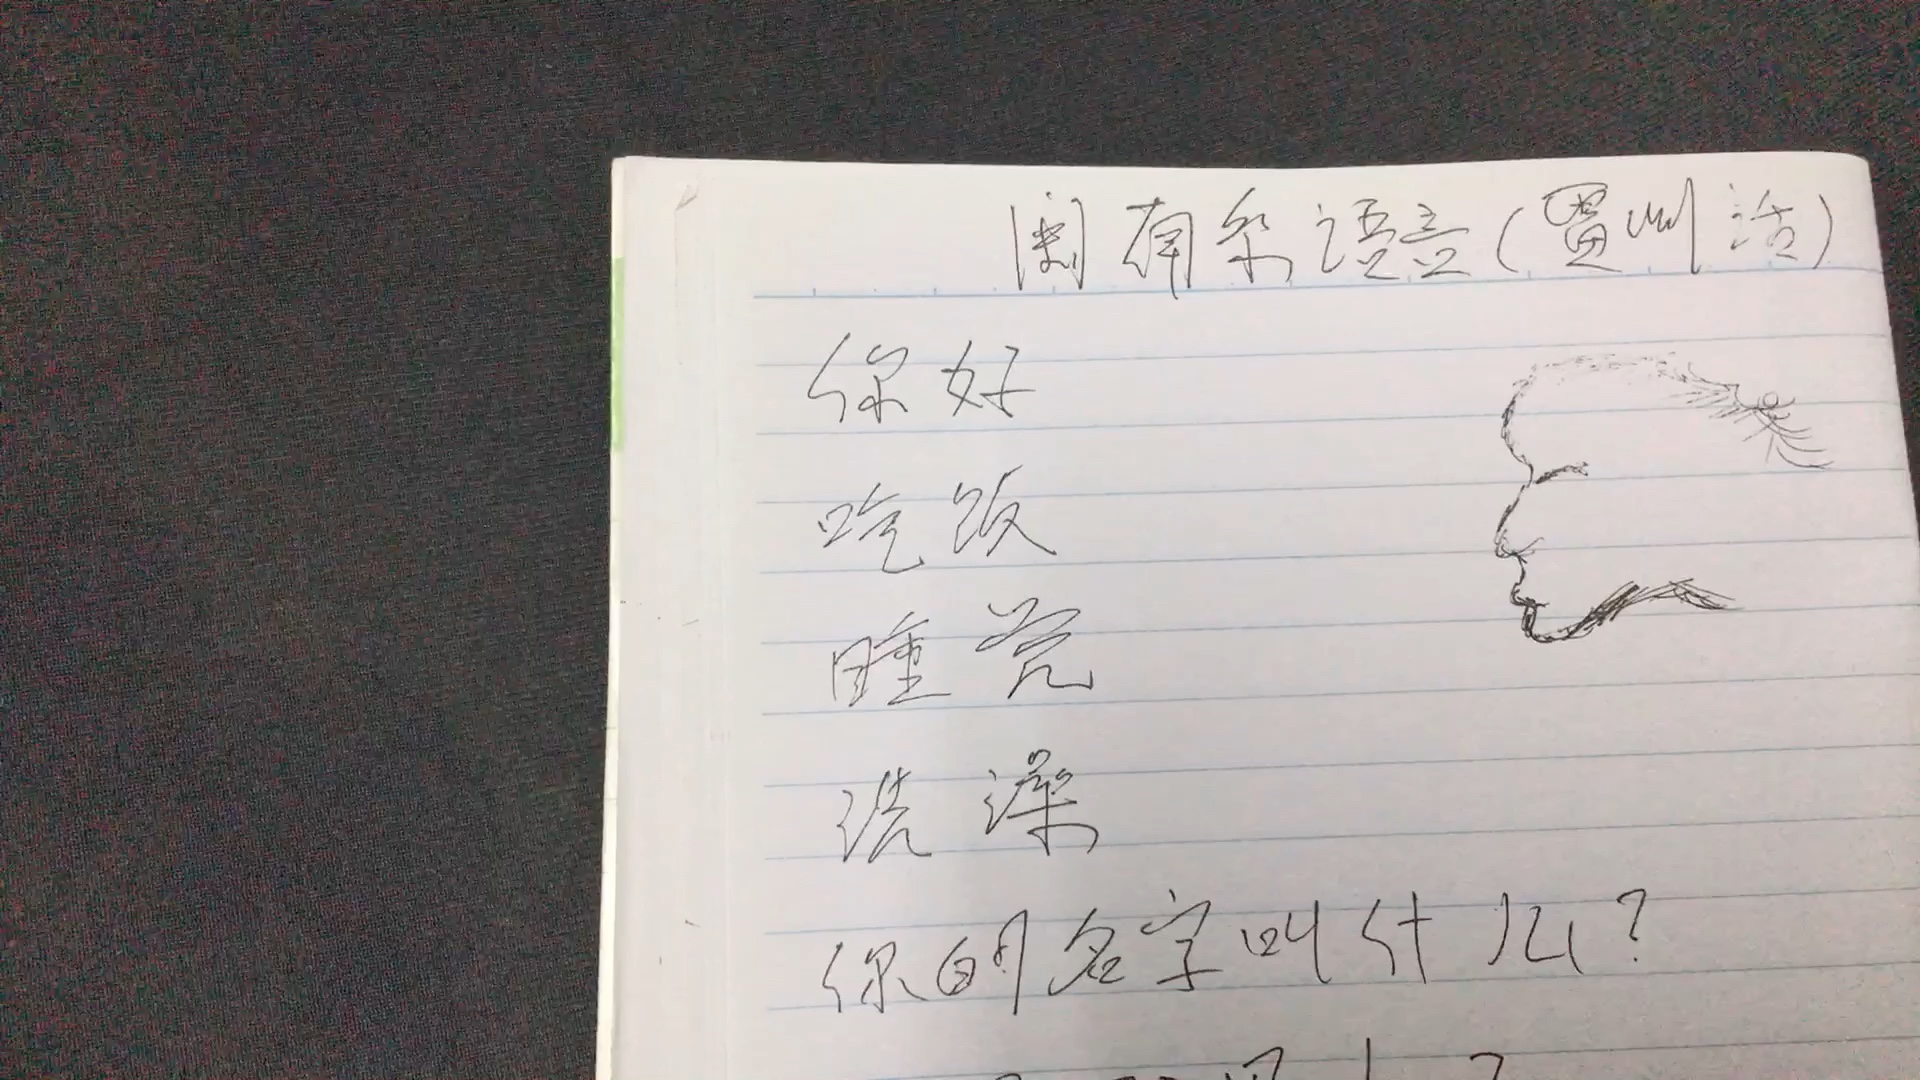 闽南系语言(雷州话)
你好
吃饭
睡觉
洗澡
你的名字叫什么?